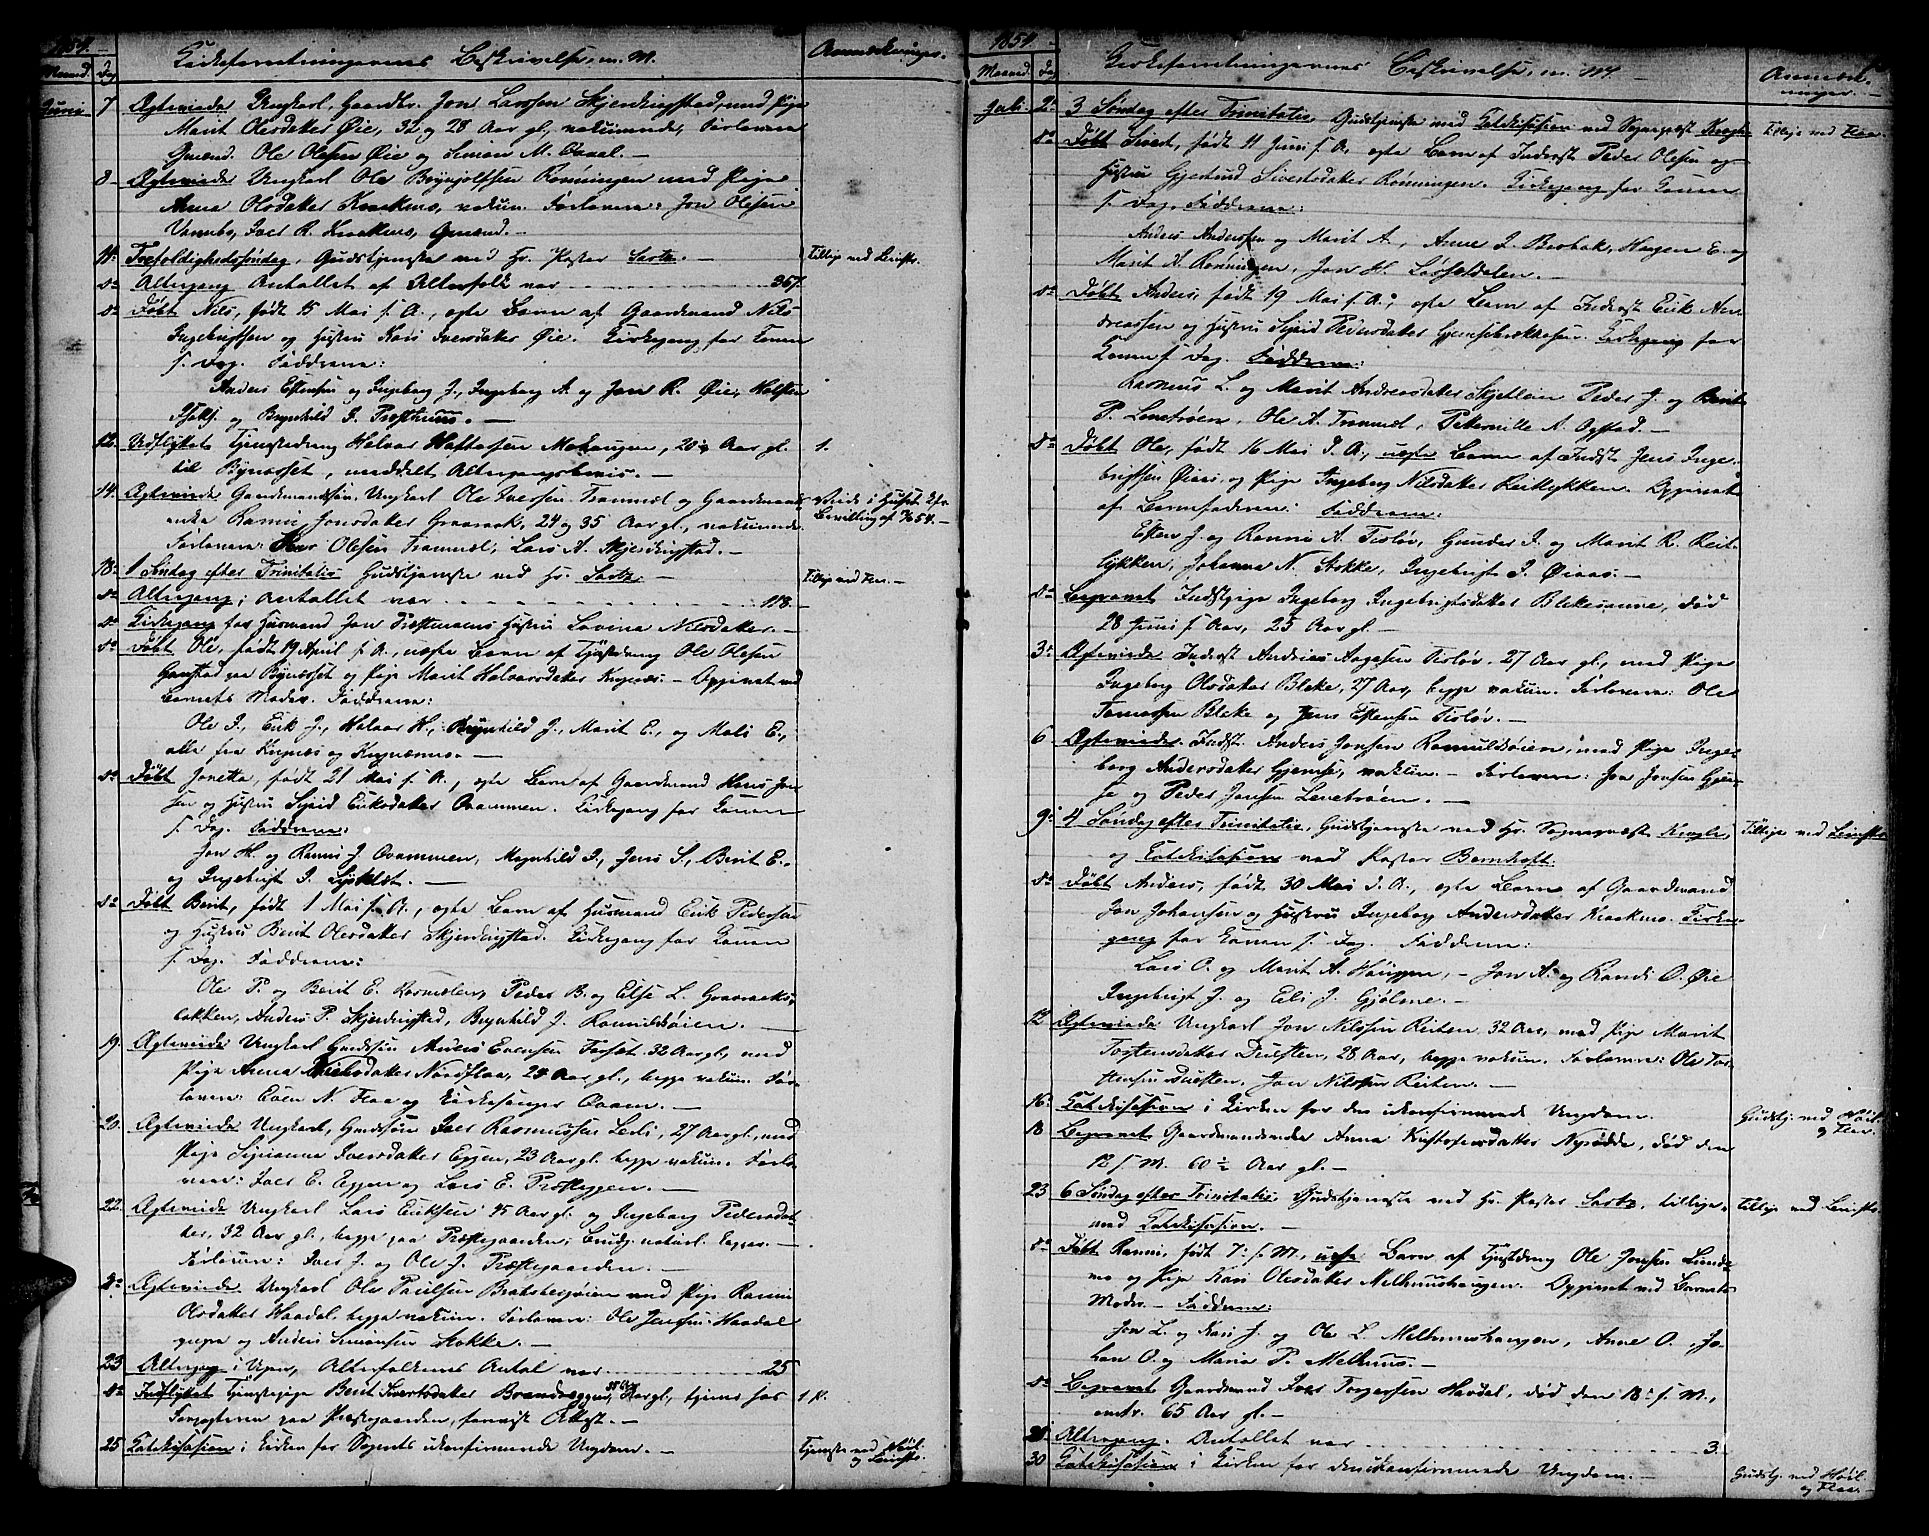 1854.
Maaned. Dag Kirkeforretningernes Beskrivelse, m. M. Anmærkninger.
Juni 7 Ægteviede Ungkarl, Gaardbr. Jon Larssen Skjerdingstad, med Pige
Marit Olesdatter Øie, 32 og 28 Aar gl., vakcinerede, Forlovere
Gmænd. Ole Olesen Øie og Simon M.
8 Ægteviede Ungkarl Ole Brynjolfsen Rønningen med Pige
Anna Olsdatter Kvakmo, vakcin. Forlovere: Jon Olesen
Ivar R. Kvakmo, Gmænd.
11. Trefoldighedssøndag, Gudstjeneste med Hr. Pastor Tillige ved
do Altergang Antallet af Alterfolk var 367
do Døbt Nils, født 15 Mai s. A., egte Barn af Gaardmand Nils
Ingebrigtsen og Hustru Kari Iversdatter Øie. Kirkegang for Konen
s. Dag. Faddrene:
Anders Estensen og Ingeborg J., Ingeborg A. og Jon R. Øie, Halsten
og Brynhild J. Præsthuus.
12. Udflyttet Tjenestedreng Halvor 20½ Aar gl. 1.
til Bynæsset, meddelt Altergangsbevis.
14. Ægteviede Gaardmandssøn, Ungkarl Ole Iversen Trammel og Gaardmands- viede i Huset efter
enke Ranni Jonsdatter Gravraak, 24 og 35 Aar gl., vakcinerede. Bevilling af 54.
Forlovere: Olesen Trammel, Lars A. Skjerdingstad.
18. 1 Søndag efter Trinitatis Gudstjeneste ved Hr. Tillige ved Flaa.
do Altergang; Antallet var 118.
do Kirkegang for Husmand Jon Hustru Lovina Nilsdatter.
do Døbt Ole, født 19 April s. A., uegte Barn af Tjenestedreng Ole Olesen
paa Bynæsset og Pige Marit Halvorsdatter Kregnæs. Opgivet ved
Barnets Moder. Faddrene:
Ole J., Erik J., Halvor H., Brynhild J., Marit E., og Mali E.,
alle fra Kregnæs og
do Døbt Jonetta, født 21 Mai s. A., egte Barn af Gaardmand Hans Jon
sen og Hustru Sigrid Eriksdatter Qvammen. Kirkegang for Konen
s. Dag. Faddrene:
Jon H. og Ranni J. Qvammen, Magnhild J., Jens S., Berit E.
og Ingebrigt J.
do Døbt Berit, født 1 Mai s. A., egte Barn af Husmand Erik Pedersen
og Hustru Berit Olesdatter Skjerdingstad. Kirkegang for Konen
s. Dag. Faddrene:
Ole P. og Berit E. Peder B. og Else L. Gravraaks-
bakken, Anders P. Skjerdingstad, Brynhild J. Romuldsøien.
19. Ægteviede Ungkarl Gmdssøn Anders Evensen Forset 32 Aar gl., med
Pige Anna Nordflaa, 24 Aar gl., begge vakcin. For-
lovere: Even N. Flaa og Kirkesanger Qvam.
20. Ægteviede Ungkarl, Gmdssøn Iver Rasmussen 27 Aar gl., med
Pige Sigrianna Iversdatter Eggen, 23 Aar gl. begge vakcin. Forlo-
vere: Iver E. Eggen og Lars E. Præsteggen.
22. Ægteviede Ungkarl Lars Eriksen 45 Aar gl. og Ingeborg Pedersdat-
ter, 32 Aar gl., begge paa Præstegaarden;
Forlovere: Iver J. og Ole J. Præstegaarden.
do Ægteviede Ungkarl Ole Paulsen med Pige Ranni
Olsdatter Havdal, begge vakcin. Forlovere: Ole Jensen Havdal
og Anders Simonsen Stokke.
23 Altergang i Alterfolkenes Antal var 25
do Indflyttet Tjenestepige Berit Sivertsdatter Aar gl., tjener hos 1 K.
paa Præstegaarden,
25 Catekisation i Kirken for Sognets ukonfirmerede Ungdom. Tjeneste ved Høil.
og

1854
Maaned. Dag Kirkeforretningernes Beskrivelse, m. M. Anmærk-
ninger.
Juli 2. 3 Søndag efter Trinitatis, Gudstjeneste med Catekisation ved Sognepræst Tillige ved Flaa.
do Døbt Sivert, født 11 Juni s. A. egte Barn af Inderst Peder Olesen og
Hustru Gjertrud Sivertsdatter Rønningen. Kirkegang for Konen
s. Dag. Faddrene:
Anders Anderssen og Marit A., Anne J. Haagen E. og
Marit N. Rønningen, Jon H.
do Døbt Anders, født 19 Mai s. A., egte Barn af Inderst Erik An-
dreassen og Hustru Sigrid Pedersdatter Gjemsebakken. Kirkegang for
Konen s. Dag. Faddrene:
Rasmus L. og Marit Andreasdatter Skjetlein Peder J. og Berit
P. Lenetrøen, Ole A. Trammel, Petternille A.
do Døbt Ole, født 16 Mai d. A., uegte Barn af Indst. Jens Inge-
brigtsen Øiaas, og Pige Ingeborg Nilsdatter Reitlykken. Opgivet
af Barnefaderen. Faddrene:
Esten J. og Ranni A. Tesløv, Gunder J. og Marit R. Reit-
lykken, Johanna N. Stokke, Ingebrigt J. Øiaas.
do Begravet Indstpige Ingeborg Ingebrigtsdatter Blekesaune, død
28 Juni s. Aar, 25 Aar gl.
3. Ægteviede Inderst Andreas Aagesen Tesløv. 27 Aar gl., med Pige
Ingeborg Olsdatter Bleke, 27 Aar, begge vakcin. Forlovere: Ole
Tomassen Bleke og Jens Estensen Tesløv.
6 Ægteviede Indst. Anders Jonsen Romuldsøien, med Pige Inge-
borg Andersdatter Gjemse, vakcin. Forlovere: Jon Jonsen Gjem-
se og Peder Jonsen Lenetrøen.
9. 4 Søndag efter Trinitatis, Gudstjeneste ved Hr. Sognepræst Tillige ved
og Catekisation ved Pastor Bernhoft.
do Døbt Anders, født 30 Mai d. A., egte Barn af Gaardmand
Jon Johansen og Hustru Ingeborg Andersdatter Kvakmo. Kirke-
gang for Konen s. Dag. Faddrene:
Lars O. og Marit A. Jon A. og Randi O. Øie
Ingebrigt J. og Eli J. Gjølme.
12 Ægteviede Ungkarl Jon Nilssen Reiten 32 Aar, med Pige Marit
Tostensdatter 28 Aar, begge vakcin. Forlovere: Ole Tos-
tensen Jon Nilssen Reiten.
16. Catekisation i Kirken for den ukonfirmerede Ungdom. Gudstj. ved Høil.
og Flaa.
18 Begravet Gaardmandsenke Anna Kristofersdatter død den
12 s. M. 60½ Aar gl.
23 6 Søndag efter Trinitatis Gudstjeneste ved Hr. Pastor tillige Tillige ved
med Catekisation.
do Døbt Ranni, født 7. s. M., uegte Barn af Tjenestedreng Ole Jonsen
og Pige Kari Olesdatter Melhuushaugen. Opgivet ved Barnets
Moder. Faddrene:
Jon L. og Kari J. og Ole L. Melhuushaugen, Anne O., Jo-
han O. og Maria P. Melhuus.
do Begravet Gaardmand Iver Torgersen Havdal, død den 18. s. M.,
omtr. 65 Aar gl.
Altergang. Antallet var 3.
30 Catekisation i Kirken for den ukonfirmerede Ungdom. Gudstj. ved Høil.
og Flaa.